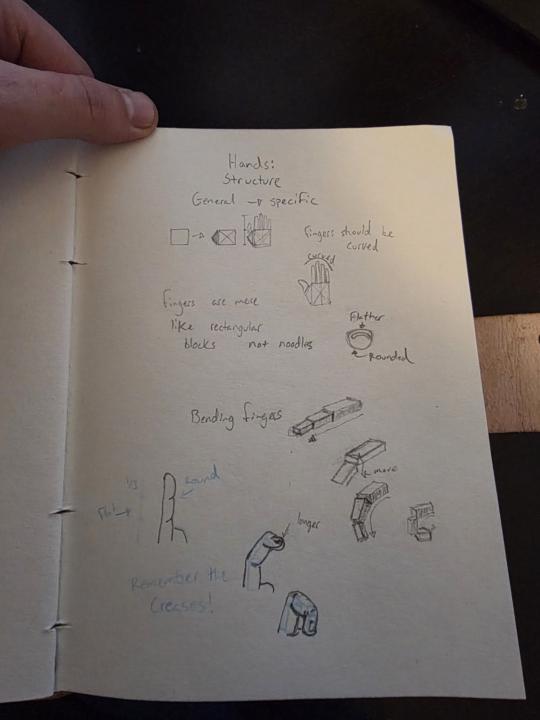 Hands:
Structure
General → specific
Fingers should be
curved
curved
fingers are more
like rectangular
blocks not noodles
Flatter
Rounded
Bending fingers
more
1/3
Round
Flat
longer
Remember the
Creases!